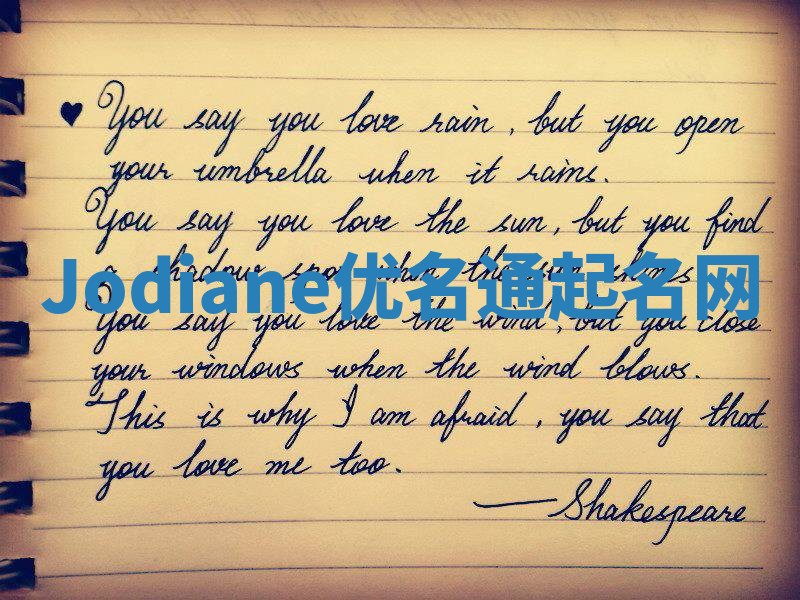 ♥ You say you love rain, but you open
your umbrella when it rains.
You say you love the sun, but you find
a shadow spot when the sun shines
Jodiane优名通起名网
You say you love the wind, but you close
your windows when the wind blows.
This is why I am afraid, you say that
you love me too.
—Shakespeare